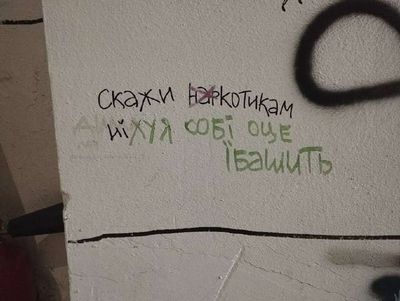 скажи наркотикам
ніхуя собі оце
їбашить